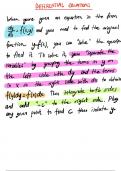 DIFFERENTIAL EQUATIONS
When you're given an equation in the form
dy/dx = f(x,y) and you need to find the original
function y=f(x), you can "solve" the equation
to find it. To solve it, you "separate the
variables" by grouping the terms in y on
the left side with dy and the terms
in x on the right side with dx to obtain
Then integrate both sides
and add "+c" to the right side. Plug
any given point to find C, then isolate y.